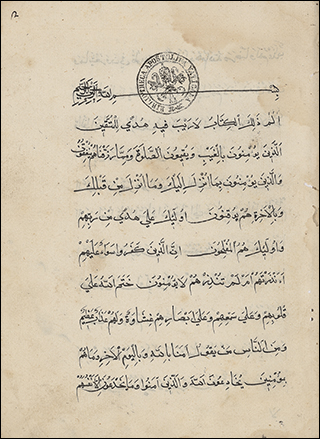 BIBLIOTHECA APOSTOLICA VATICANA
بسم الله الرحمن الرحيم
الم ذلك الكتاب لا ريب فيه هدي للمتقين
الذين يومنون بالغيب ويقيمون الصلوة ومما رزقناهم ينفقون
والذين يومنون بما انزل اليك وما انزل من قبلك
وبالاخرة هم يوقنون اوليك علي هدي من ربهم
واوليك هم المفلحون ان الذين كفروا سواء عليهم
ءانذرتهم ام لم تنذرهم لا يومنون ختم الله علي
قلوبهم وعلي سمعهم وعلي ابصارهم غشاوة ولهم عذاب عظيم
ومن الناس من يقول امنا بالله وباليوم الاخر وما هم
بمومنين يخادعون الله والذين امنوا وما يخدعون الا انفسهم